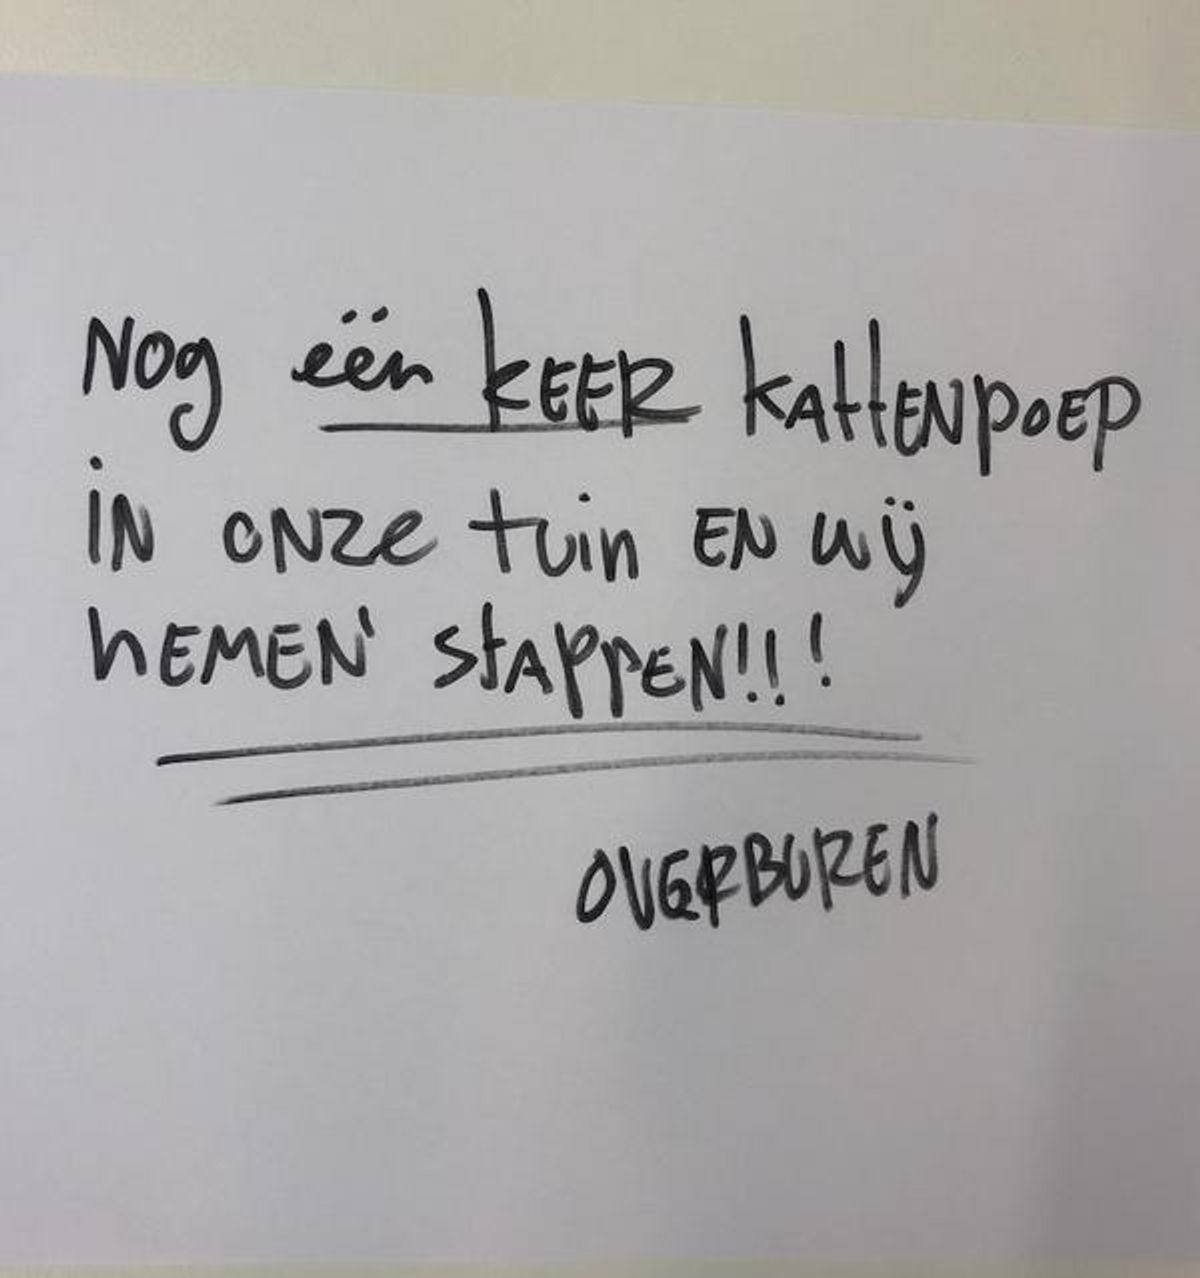 Nog eën KEER kattENpoEp
iN ONze tuin EN wij
hEMEN' stAppEN!!!
OVERBUREN